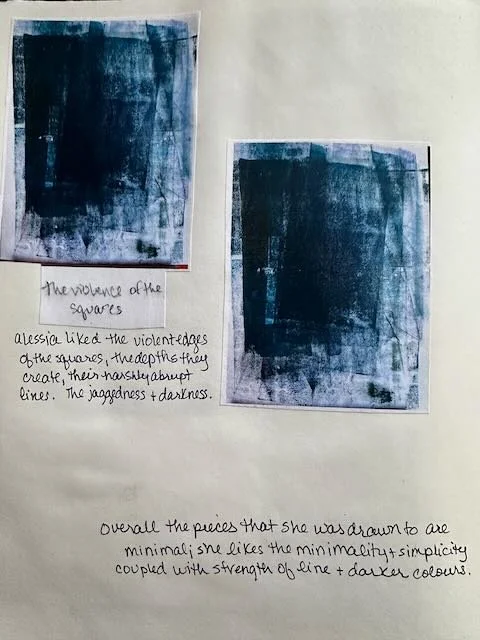 The violence of the
squares
alessia liked the violent edges
of the squares, the depths they
create, their harshly abrupt
lines. The jaggedness + darkness.
overall the pieces that she was drawn to are
minimal; she likes the minimality + simplicity
coupled with strength of line + darker colours.